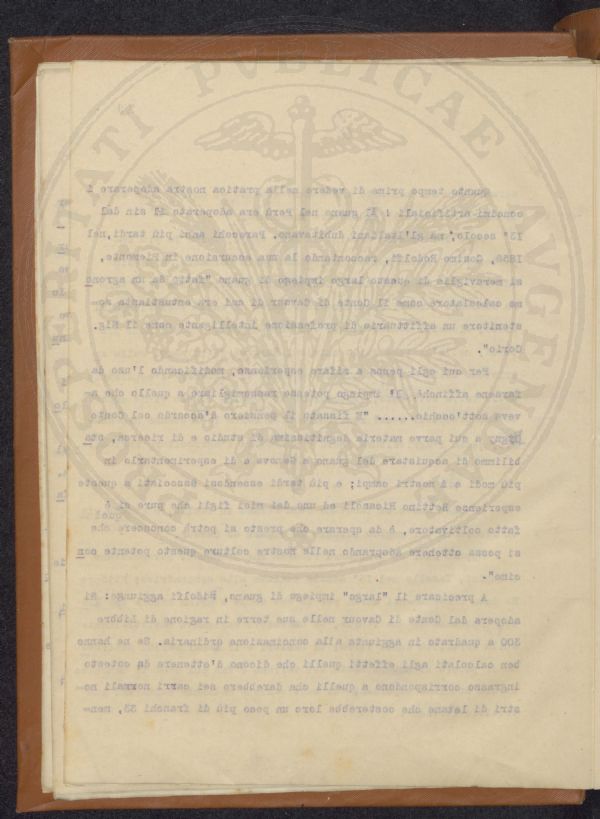 PROSPERITATI PVBLICAE AVGENDAE
Quanto tempo prima di vedere nella pratica nostra adoperare i
concimi artificiali : Il guano nel Perù era adoperato il sin dal
13° secolo, ma gl'Italiani dubitavano. Parecchi anni più tardi, nel
Cosimo Ridolfi, raccontando la sua escursione in Piemonte,
si meraviglia di questo largo impiego di guano "fatto da un agrono
mo calcolatore come il Conte di Cavour di cui era entusiasta so-
stenitore un affittuario di professione intelligente come il Sig.
Corio".
Per cui egli pensa a rifare esperienze, modificando l'uso da
farsene affinchè, l'impiego potesse rassomigliare a quello che a-
veva sott'occhio...... "E fissato il pensiero d'accordo col Conte
a cui parve materia degnissima di studio e di ricerca, sta
bilimmo di acquistare del guano a Genova e di esperimentarlo in
più modi e i nostri campi; e più tardi essendosi associati a queste
quel
esperienze Bettino Ricasoli ed uno dei miei figli che pure si è
fatto coltivatore, è da sperare che presto si potrà conoscere che
si possa ottenere adoprando nelle nostre colture questo potente con
cime".
A precisare il "largo" impiego di guano, Ridolfi aggiunge: Si
adopera dal Conte di Cavour nelle sue terre in ragione di Libbre
300 a quadrato in aggiunta alla concimazione ordinaria. Se ne hanno
ben calcolati agli effetti quelli che dicono d'ottenere da cotesto
ingrasso corrispondono a quelli che darebbero sei carri normali no-
stri di letame che costerebbe loro un poco più di franchi 33, men-